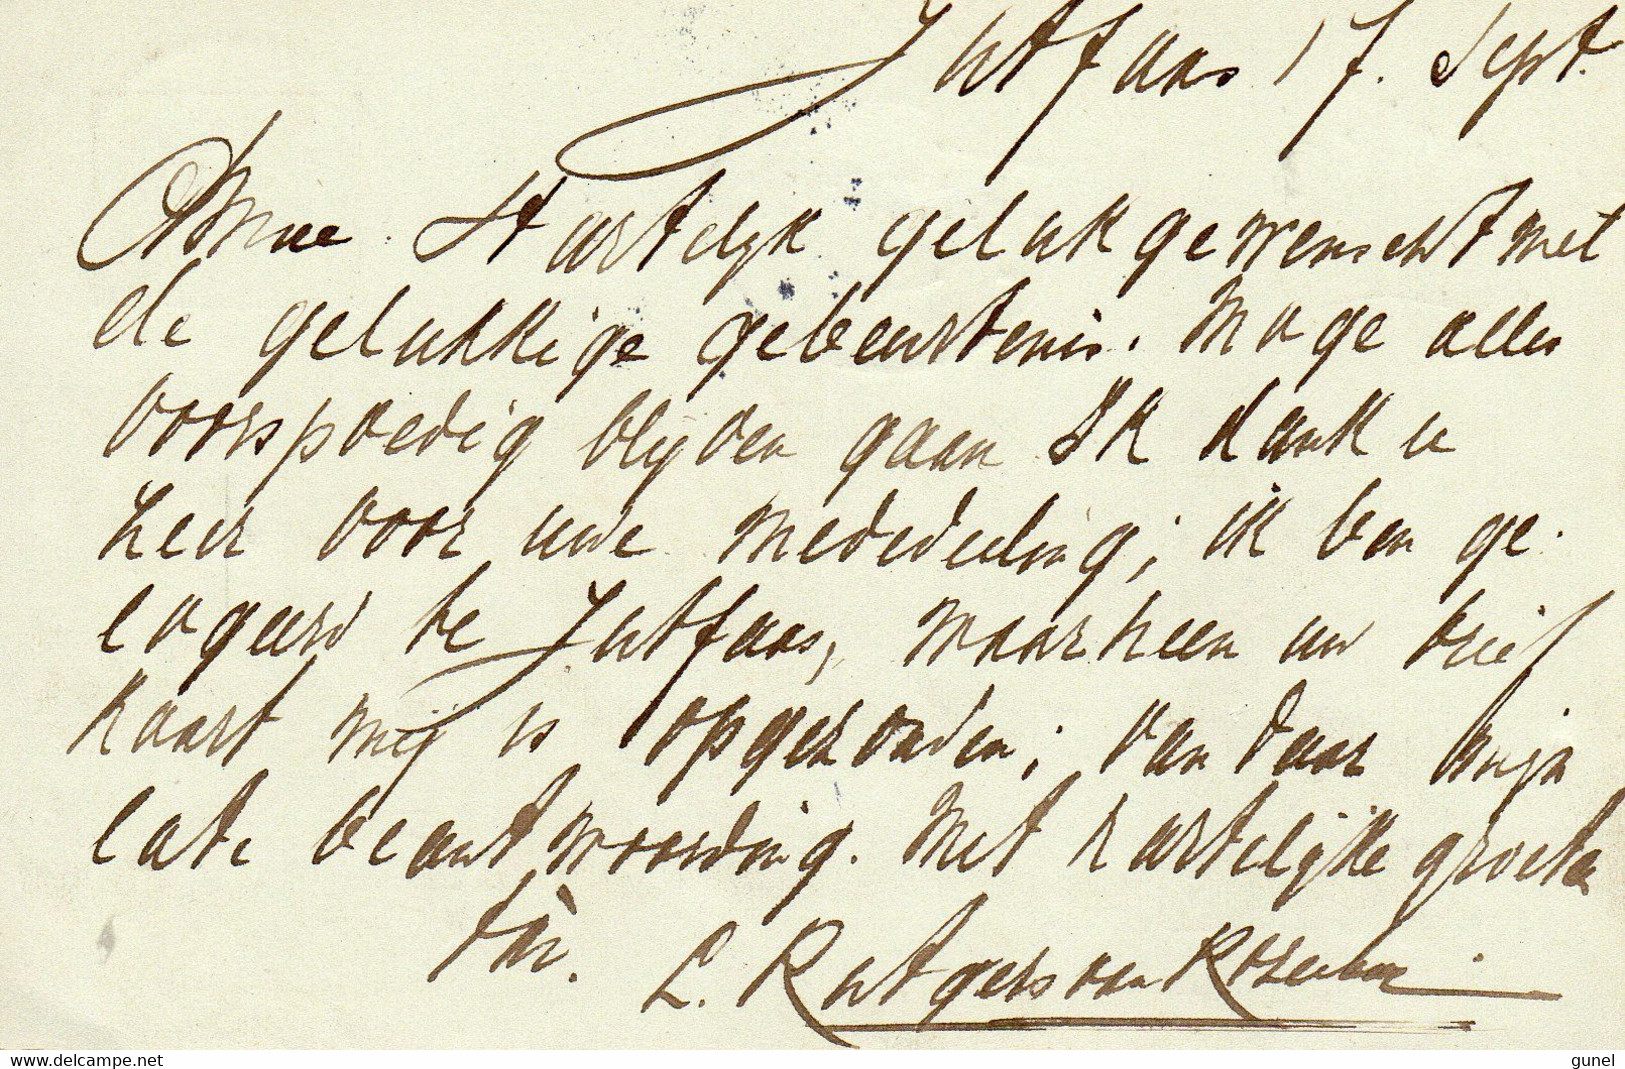 Jutfaas 17. Sept.
Amice. Hartelijk gelukgewenscht met
de gelukkige gebeurtenis. Moge alles
voorspoedig blijven gaan Ik dank u
zeer voor uwe mededeeling; ik ben ge-
logeerd te Jutfaas, waarheen uw brief
kaart mij is opgezonden; van daar mijn
late beantwoording. Met hartelijke groeten
tàv.
L. Rutgers van Rozenburg.
www.delcampe.net
gunel